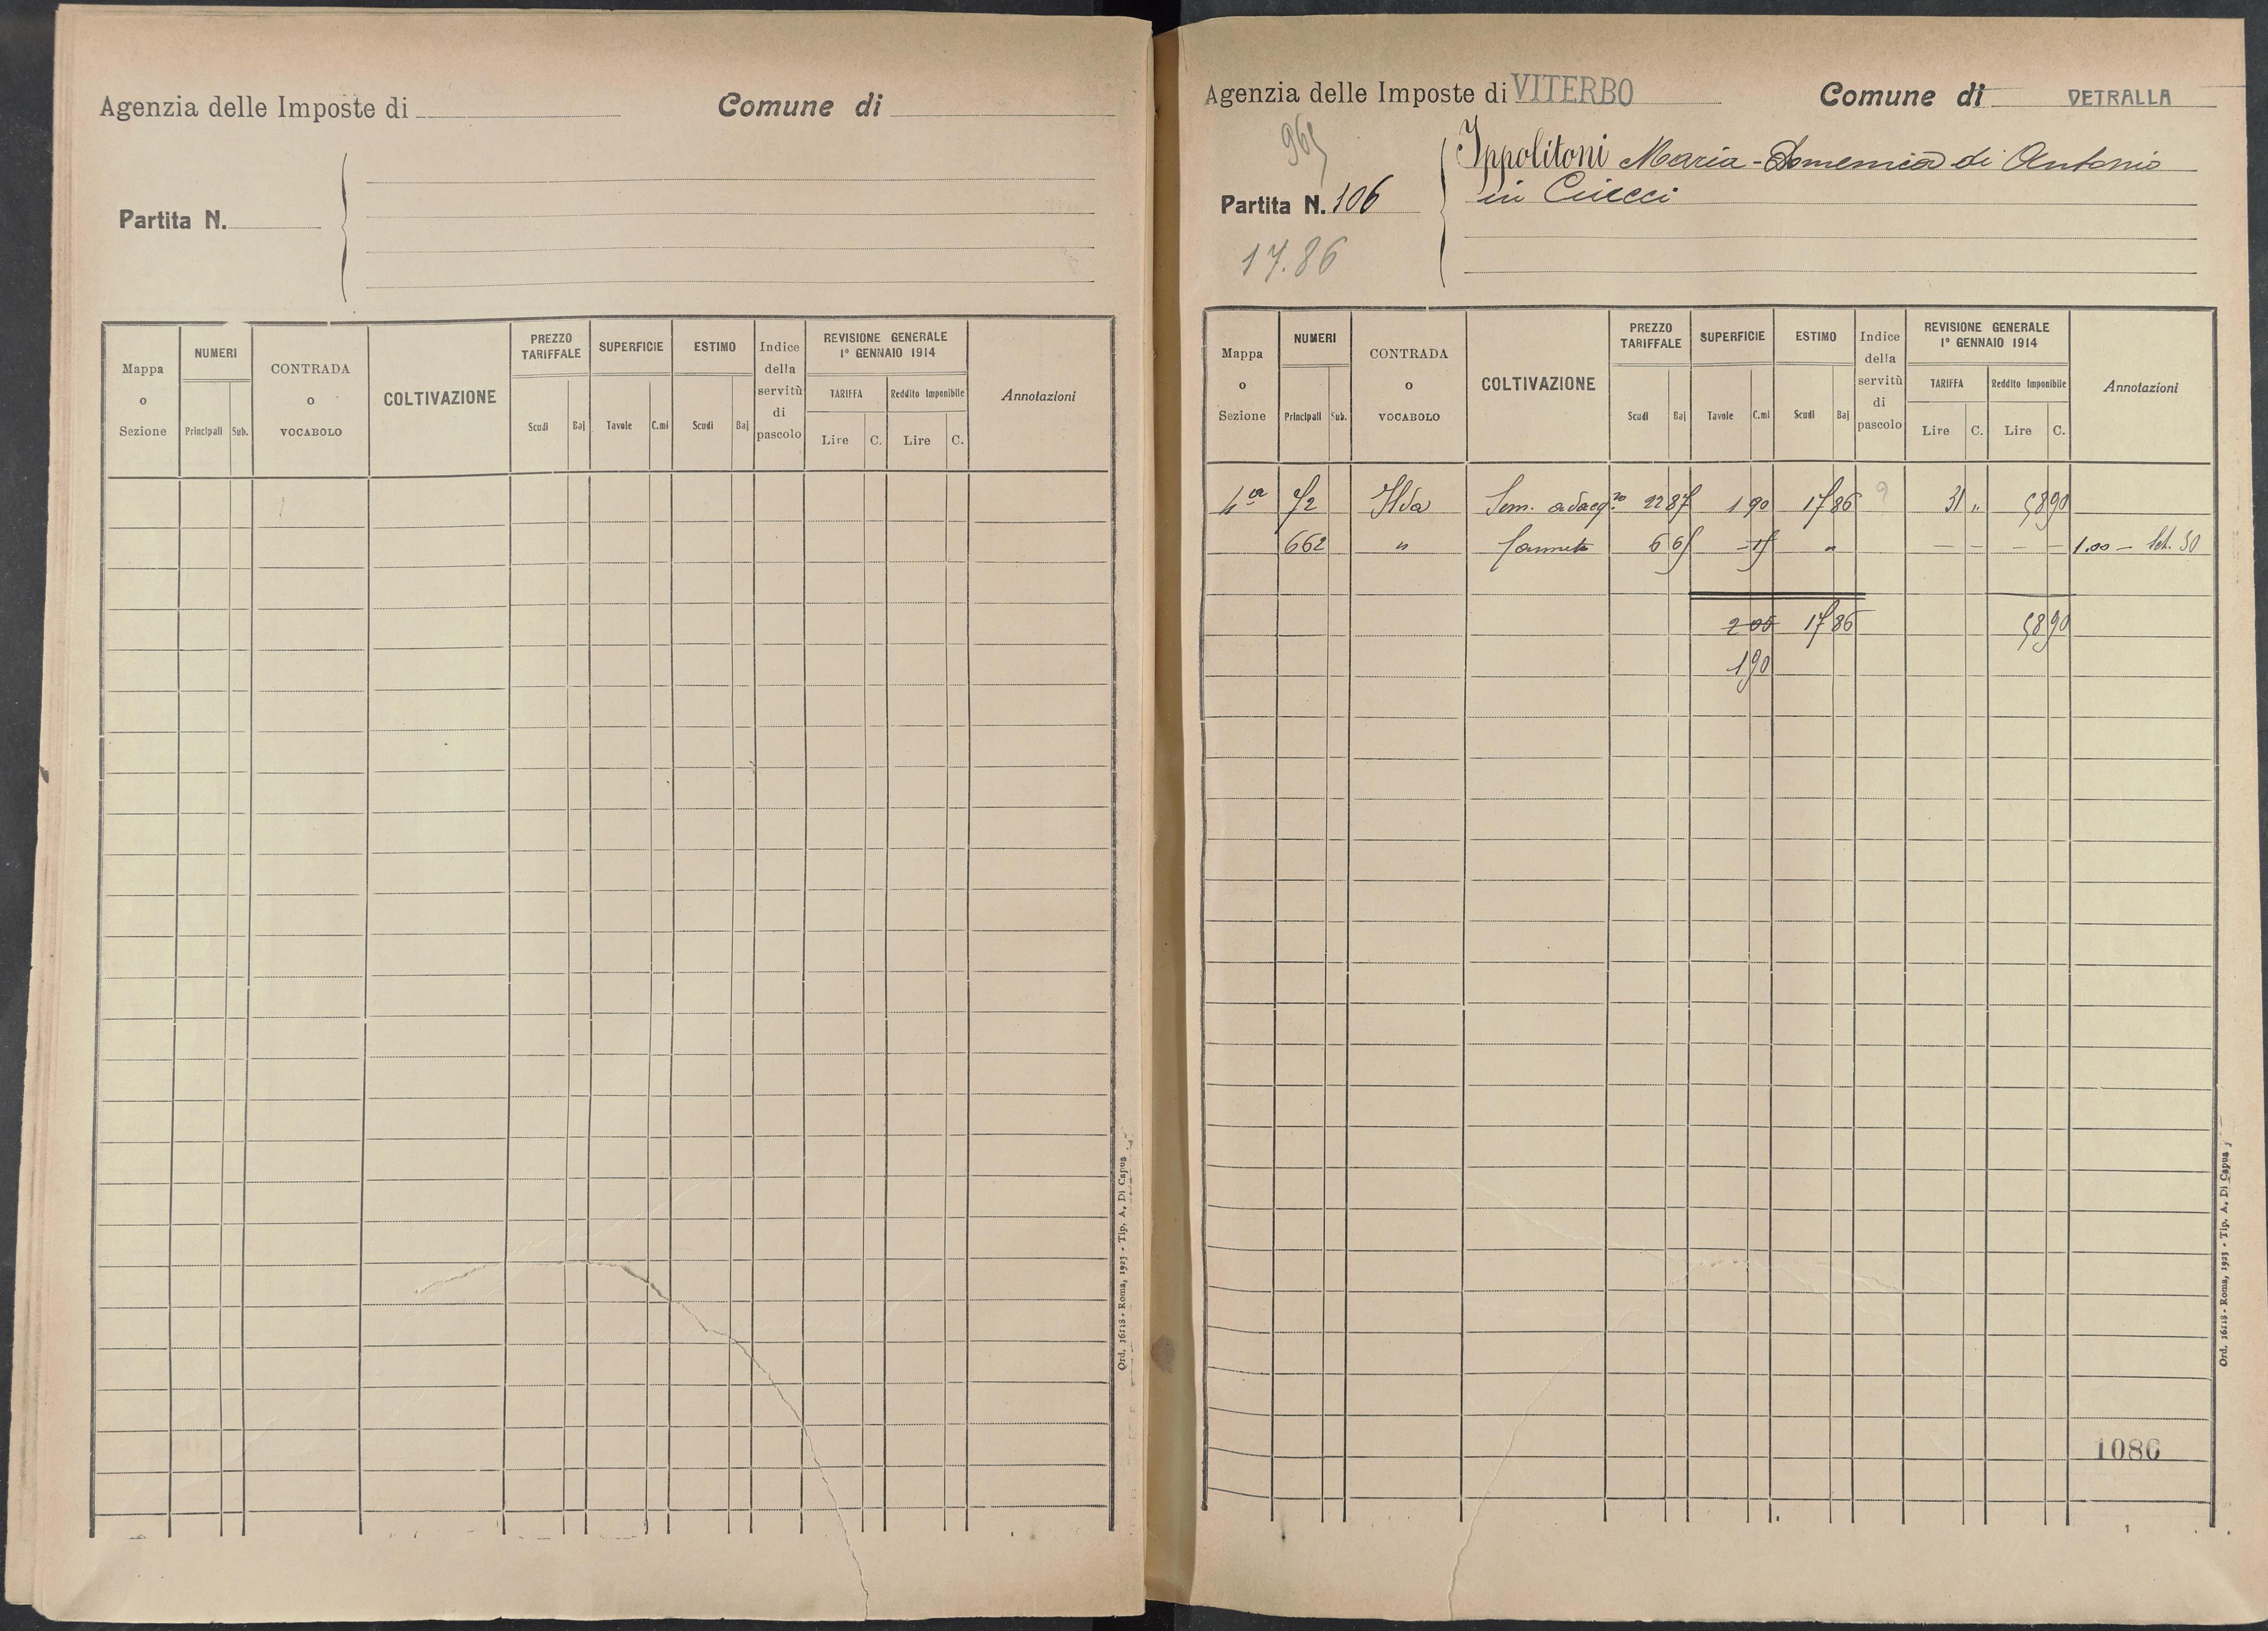 Agenzia delle Imposte di
Comune di
Partita N.
Mappa o Sezione
NUMERI
Principali Sub.
CONTRADA o VOCABOLO
COLTIVAZIONE
PREZZO TARIFFALE
Scudi Baj
SUPERFICIE
Tavole C.mi
ESTIMO
Scudi Baj
Indice della servitù di pascolo
REVISIONE GENERALE
1° GENNAIO 1914
TARIFFA Reddito Imponibile
Lire C. Lire C.
Annotazioni
Ord. 16118 - Roma, 1923 - Tip. A. Di Capua
Agenzia delle Imposte di VITERBO
Comune di VETRALLA
965
Partita N. 106
17.86
Ippolitoni Maria-Domenica di Antonio
in Ciucci
Mappa o Sezione
NUMERI
Principali Sub.
CONTRADA o VOCABOLO
COLTIVAZIONE
PREZZO TARIFFALE
Scudi Baj
SUPERFICIE
Tavole C.mi
ESTIMO
Scudi Baj
Indice della servitù di pascolo
REVISIONE GENERALE
1° GENNAIO 1914
TARIFFA Reddito Imponibile
Lire C. Lire C.
Annotazioni
4ª 72 Sem. adacq. 22 87 1 90 17 86 9 31 " 58 90
662 " Canneto 6 65 - 15 " — — — — 1.00 — 50
2 05 17 86 58 90
1 90
1086
Ord. 16118 - Roma, 1923 - Tip. A. Di Capua